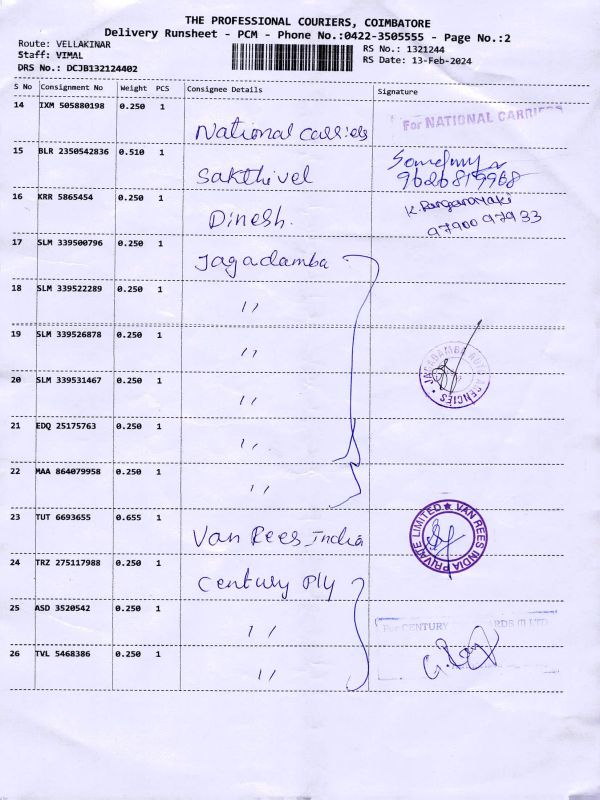 THE PROFESSIONAL COURIERS, COIMBATORE
Delivery Runsheet - PCM - Phone No.:0422-3505555 - Page No.:2
Route: VELLAKINAR
RS No.: 1321244
Staff: VIMAL
RS Date: 13-Feb-2024
DRS No.: DCJB132124402
S No Consignment No Weight PCS Consignee Details Signature
14 IXM 505880198 0.250 1 National carriers For NATIONAL CARRIERS
15 BLR 2350542836 0.510 1 Sakthivel 9626819968
16 KRR 5865454 0.250 1 Dinesh. K. Ranganayaki 97900 97933
17 SLM 339500796 0.250 1 Jagadamba
18 SLM 339522289 0.250 1 ,,
19 SLM 339526878 0.250 1 ,,
20 SLM 339531467 0.250 1 ,, JAGADAMBA AUTO AGENCIES
21 EDQ 25175763 0.250 1 ,,
22 MAA 864079958 0.250 1 ,,
23 TUT 6693655 0.655 1 Van Rees India VAN REES INDIA PRIVATE LIMITED
24 TRZ 275117988 0.250 1 Century Ply
25 ASD 3520542 0.250 1 ,, For CENTURY RDS (I) LTD
26 TVL 5468386 0.250 1 ,,